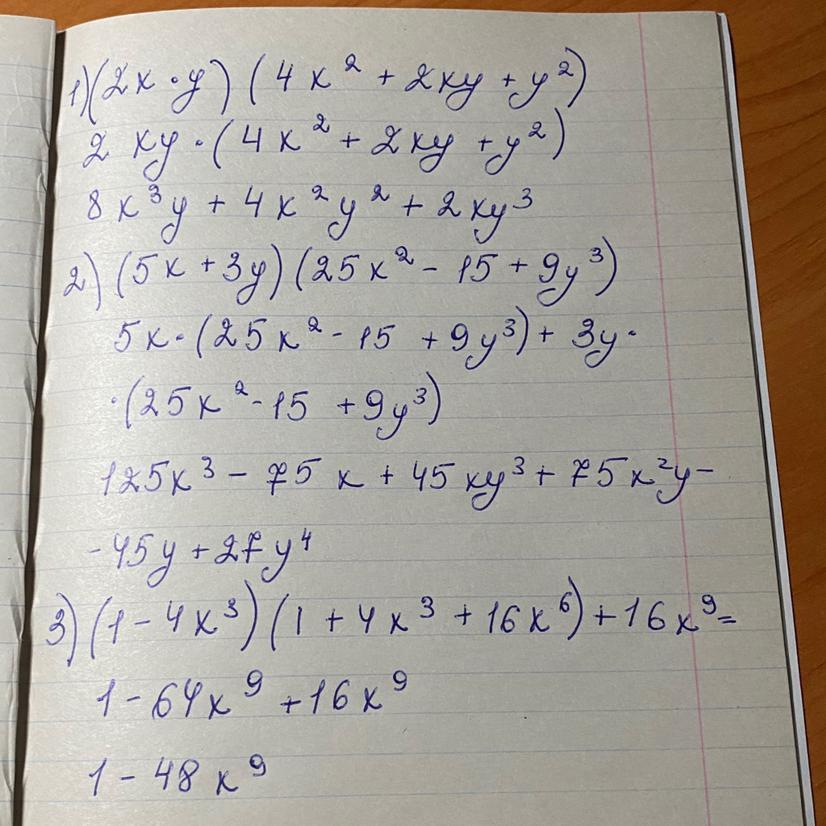 1) (2x · y) (4x² + 2xy + y²)
2 xy · (4x² + 2xy + y²)
8x³y + 4x²y² + 2xy³
2) (5x + 3y) (25x² - 15 + 9y³)
5x · (25x² - 15 + 9y³) + 3y ·
· (25x² - 15 + 9y³)
125x³ - 75x + 45xy³ + 75x²y -
- 45y + 27y⁴
3) (1 - 4x³) (1 + 4x³ + 16x⁶) + 16x⁹ =
1 - 64x⁹ + 16x⁹
1 - 48x⁹